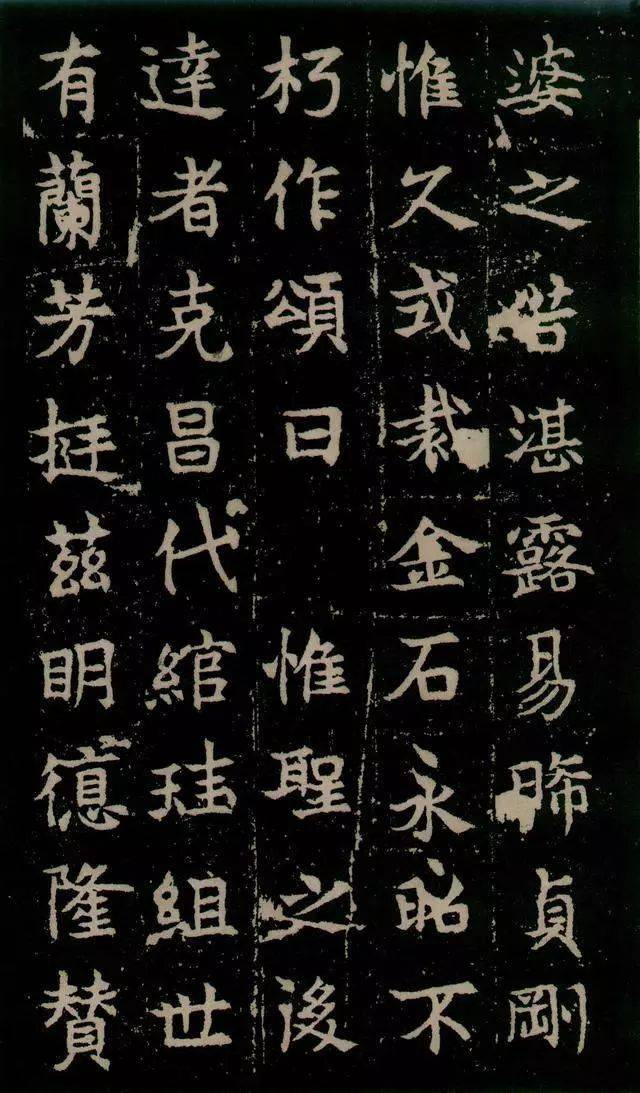 婆之㫺湛露易晞貞剛
惟久式裁金石永昭不
朽作頌曰惟聖之後
達者克昌代綰珪組世
有蘭芳挺茲明德隆贊